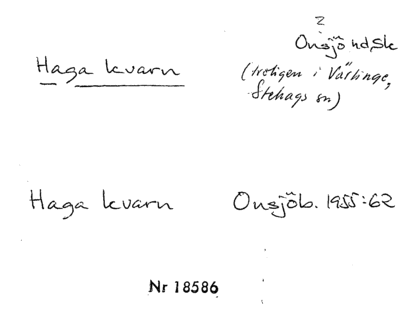 2
Onsjö hd, Sk
Haga kvarn
(troligen i Västinge,
Stehags sn)
Haga kvarn Onsjöb. 1955:62
Nr 18586